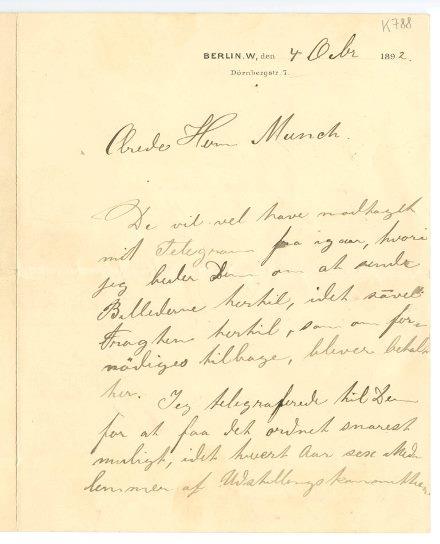 K788
BERLIN. W, den 4 Octbr 1892.
Dörnbergstr. 7.
Ærede Herr Munch.
De vil vel have modtaget
mit Telegram fra igaar, hvori
jeg beder Dem om at sende
Billederne hertil, idet såvel
Fragten hertil, som om for-
nødiges tilbage, bliver betalt
her. Jeg telegraferede til Dem
for at faa det ordnet snarest
muligt, idet hvert Aar sex Med-
lemmer af Udstillings